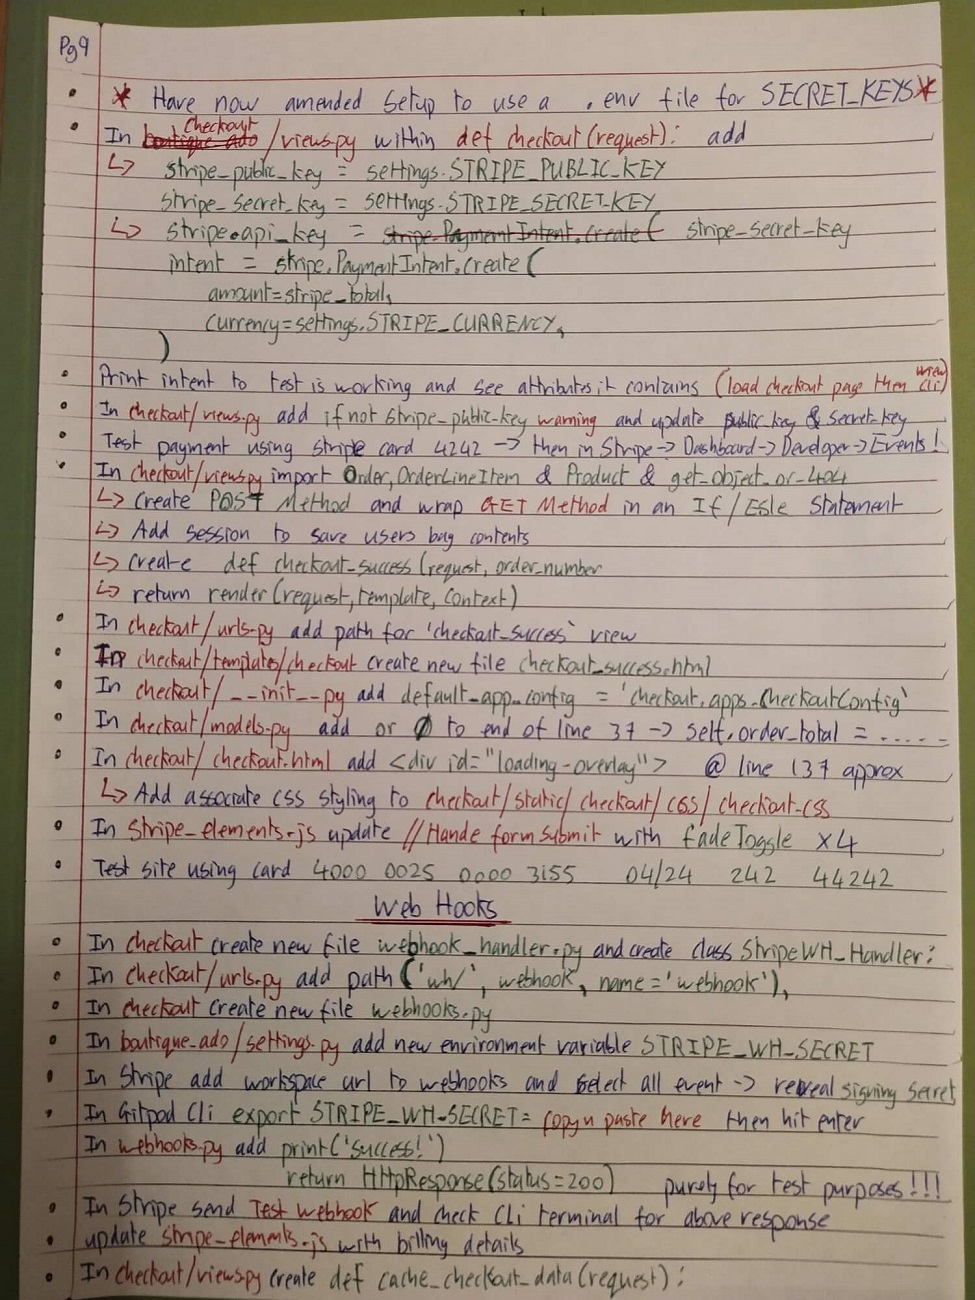 Pg9
* Have now amended Setup to use a .env file for SECRET_KEYS *
Checkout
In boutique ado /views.py within def checkout(request): add
↳ stripe_public_key = settings.STRIPE_PUBLIC_KEY
stripe_secret_key = settings.STRIPE_SECRET_KEY
↳ stripe.api_key = stripe.PaymentIntent.create( stripe_secret_key
intent = stripe.PaymentIntent.create(
amount=stripe_total,
currency=settings.STRIPE_CURRENCY,
)
Print intent to test is working and see attributes it contains (load checkout page then view CLi)
In checkout/views.py add if not stripe_public_key warning and update public_key & secret_key
Test payment using stripe card 4242 -> then in Stripe -> Dashboard -> Developer -> Events!
In checkout/views.py import Order, OrderLineItem & Product & get_object_or_404
↳ Create POST Method and wrap GET Method in an If/Esle Statement
↳ Add session to save users bag contents
↳ create def checkout_success(request, order_number
↳ return render(request, template, context)
In checkout/urls.py add path for 'checkout_success' view
In checkout/templates/checkout create new file checkout_success.html
In checkout/__init__.py add default_app_config = 'checkout.apps.CheckoutConfig'
In checkout/models.py add or 0 to end of line 37 -> self.order_total = ......
In checkout/checkout.html add <div id="loading-overlay"> @ line 137 approx
↳ Add associate css styling to checkout/static/checkout/css/checkout.css
In stripe_elements.js update //Hande form submit with fadeToggle x4
Test site using card 4000 0025 0000 3155 04/24 242 44242
Web Hooks
In checkout create new file webhook_handler.py and create class StripeWH_Handler:
In checkout/urls.py add path ('wh/', webhook, name='webhook'),
In checkout create new file webhooks.py
In boutique_ado/settings.py add new environment variable STRIPE_WH_SECRET
In Stripe add workspace url to webhooks and select all event -> reveal signing secret
In Gitpod Cli export STRIPE_WH_SECRET= copy n paste here then hit enter
In webhooks.py add print('success!')
return HttpResponse(status=200) purely for test purposes!!!
In Stripe send Test webhook and check CLi terminal for above response
update stripe_elements.js with billing details
In checkout/views.py create def cache_checkout_data(request):